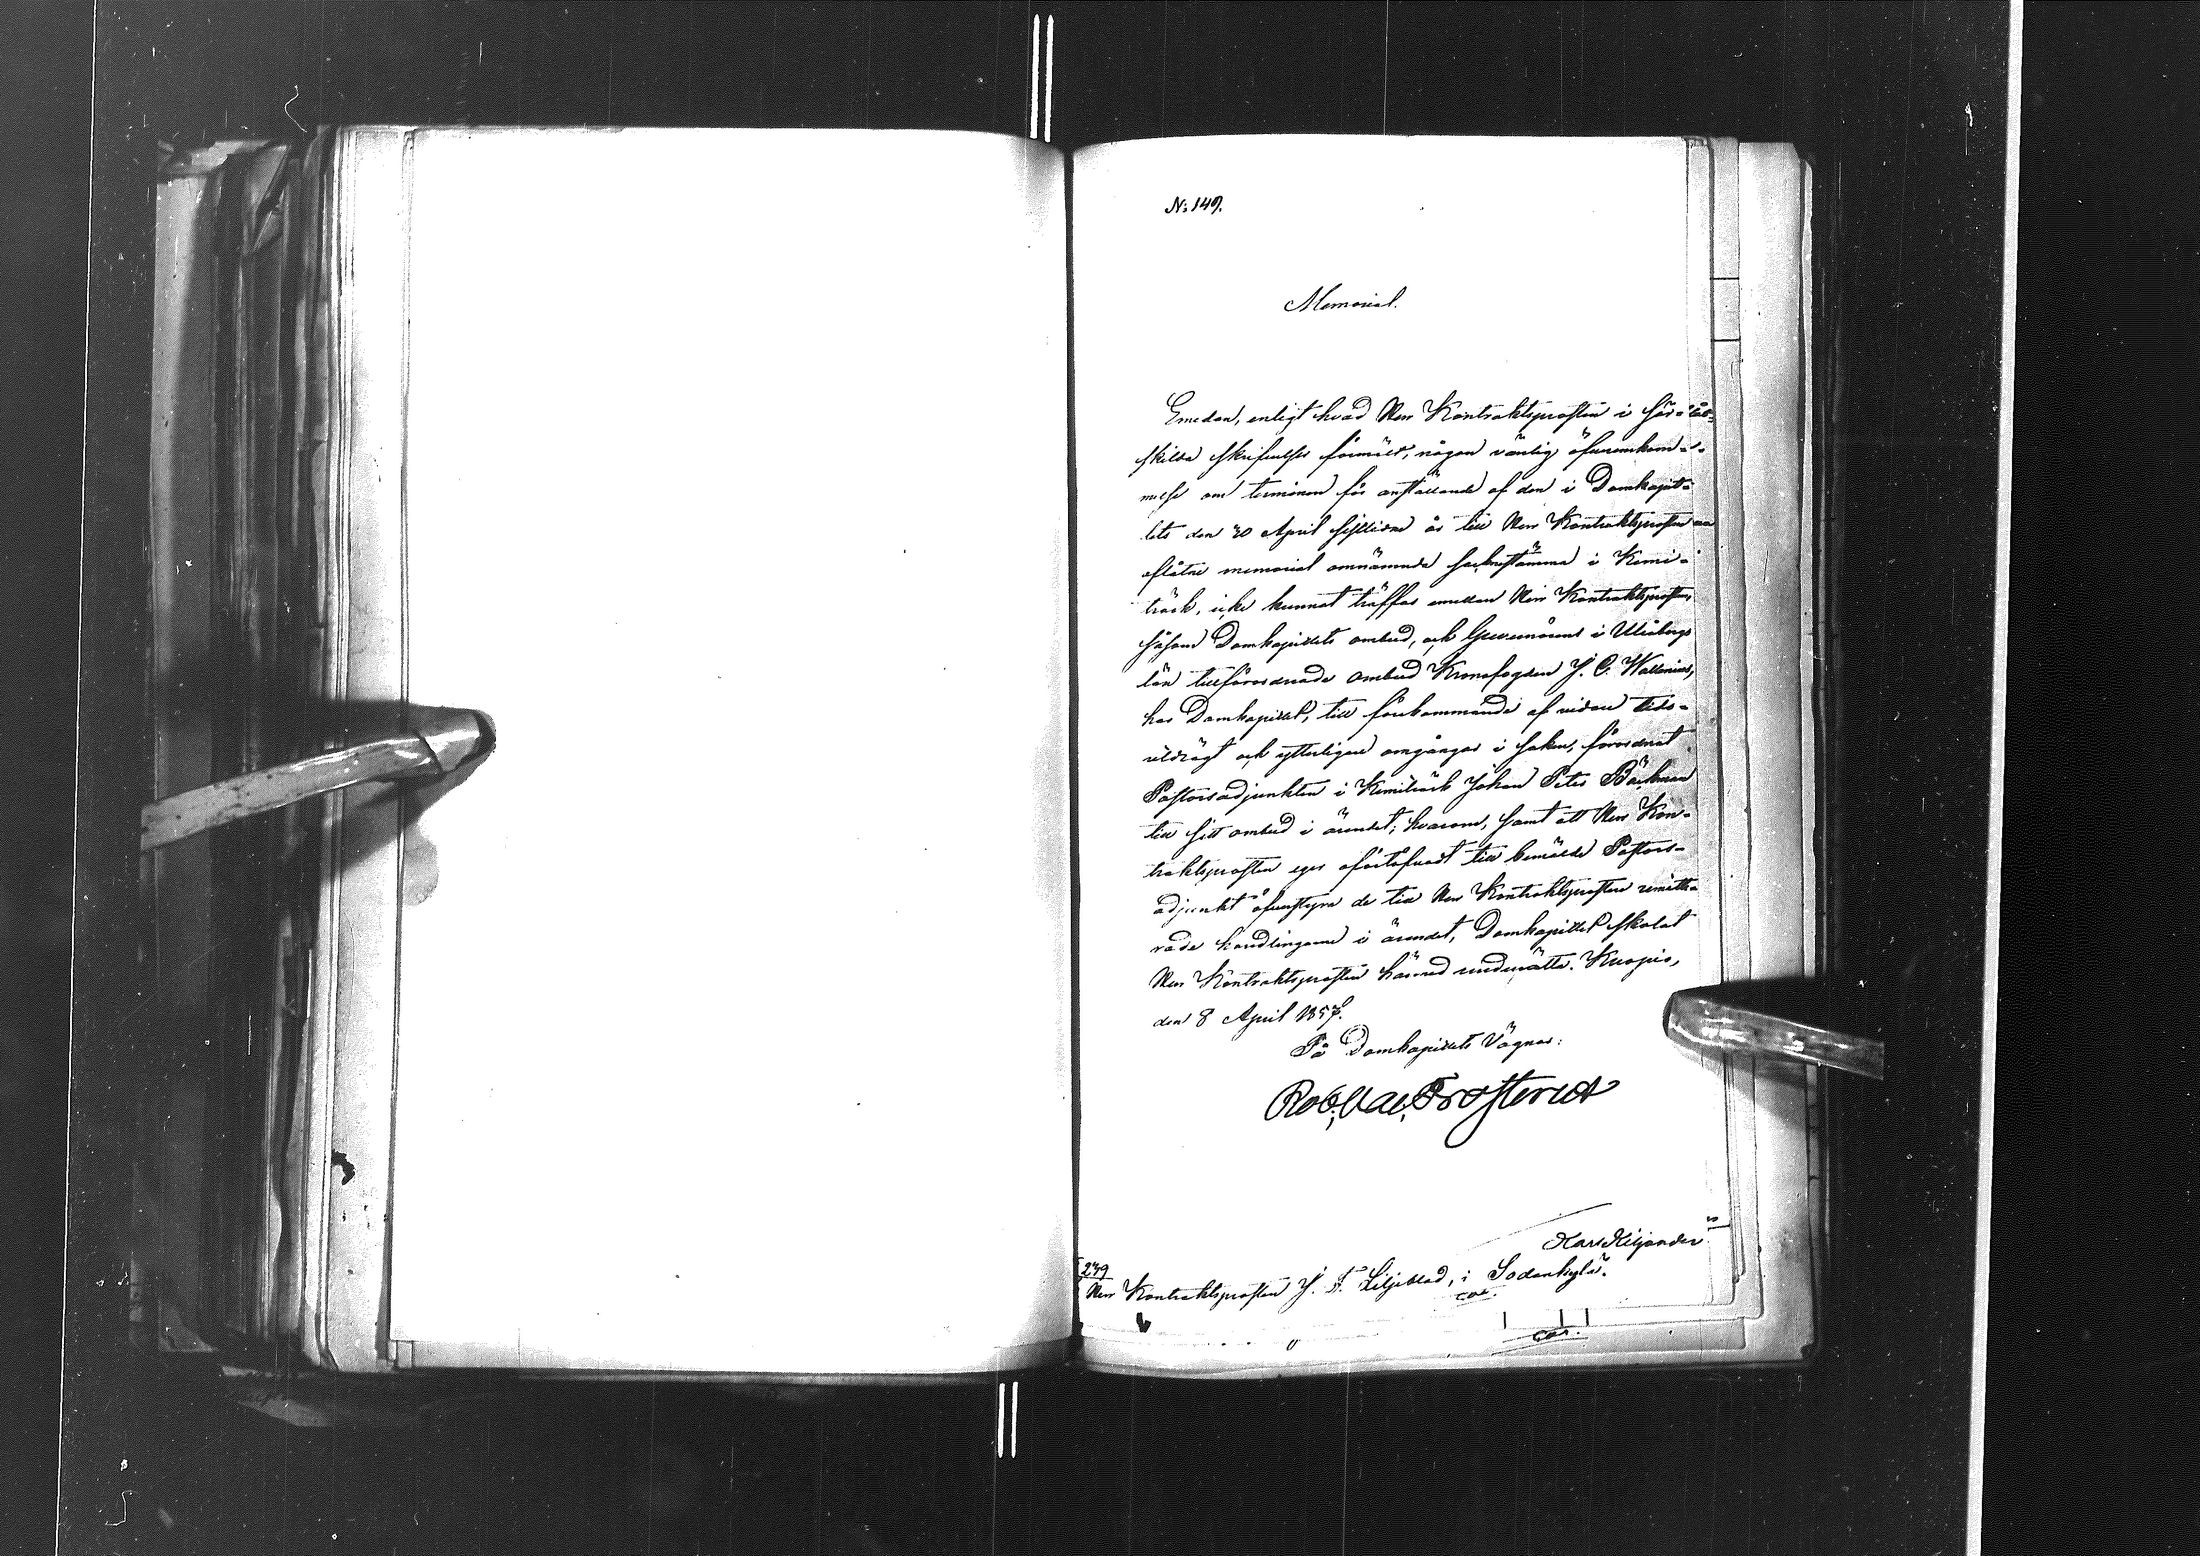 N: 149.
Memorial.
Emedan, enligt hvad Herr Kontraktsprosten i sär-
skilda skrifvelser förmält, någon vänlig öfverenkom-
melse om terminen för anställande af den i Domkapit-
lets den 30 April sistlidne år till Herr Kontraktsprosten
aflåtne memorial omnämnde sockenstämma i Kemi-
träsk, icke kunnat träffas emellan Herr Kontraktsprosten,
såsom Domkapitlets ombud, och Guvernörens i Uleåborgs
län tillförordnade ombud Kronofogden J. C. Wallenius,
har Domkapitlet, till förekommande af vidare tids-
utdrägt och ytterligare omgångar i saken, förordnat
Pastorsadjunkten i Kemiträsk Johan Peter Bäckman
till sitt ombud i ärendet; hvarom, samt att Herr Kon-
traktsprosten eger ofördröfvadt till bemälde Pastors-
adjunkt öfverstyra de till Herr Kontraktsprosten remitte-
rade handlingarne i ärendet, Domkapitlet skolat
Herr Kontraktsprosten härmed underrätta. Kuopio,
den 8 April 1857.
På Domkapitlets Vägnar:
Rob. Val. Frosterus
Karl Kiljander
239
Herr Kontraktsprosten J. F. Liljeblad, i Sodankylä.
cor.